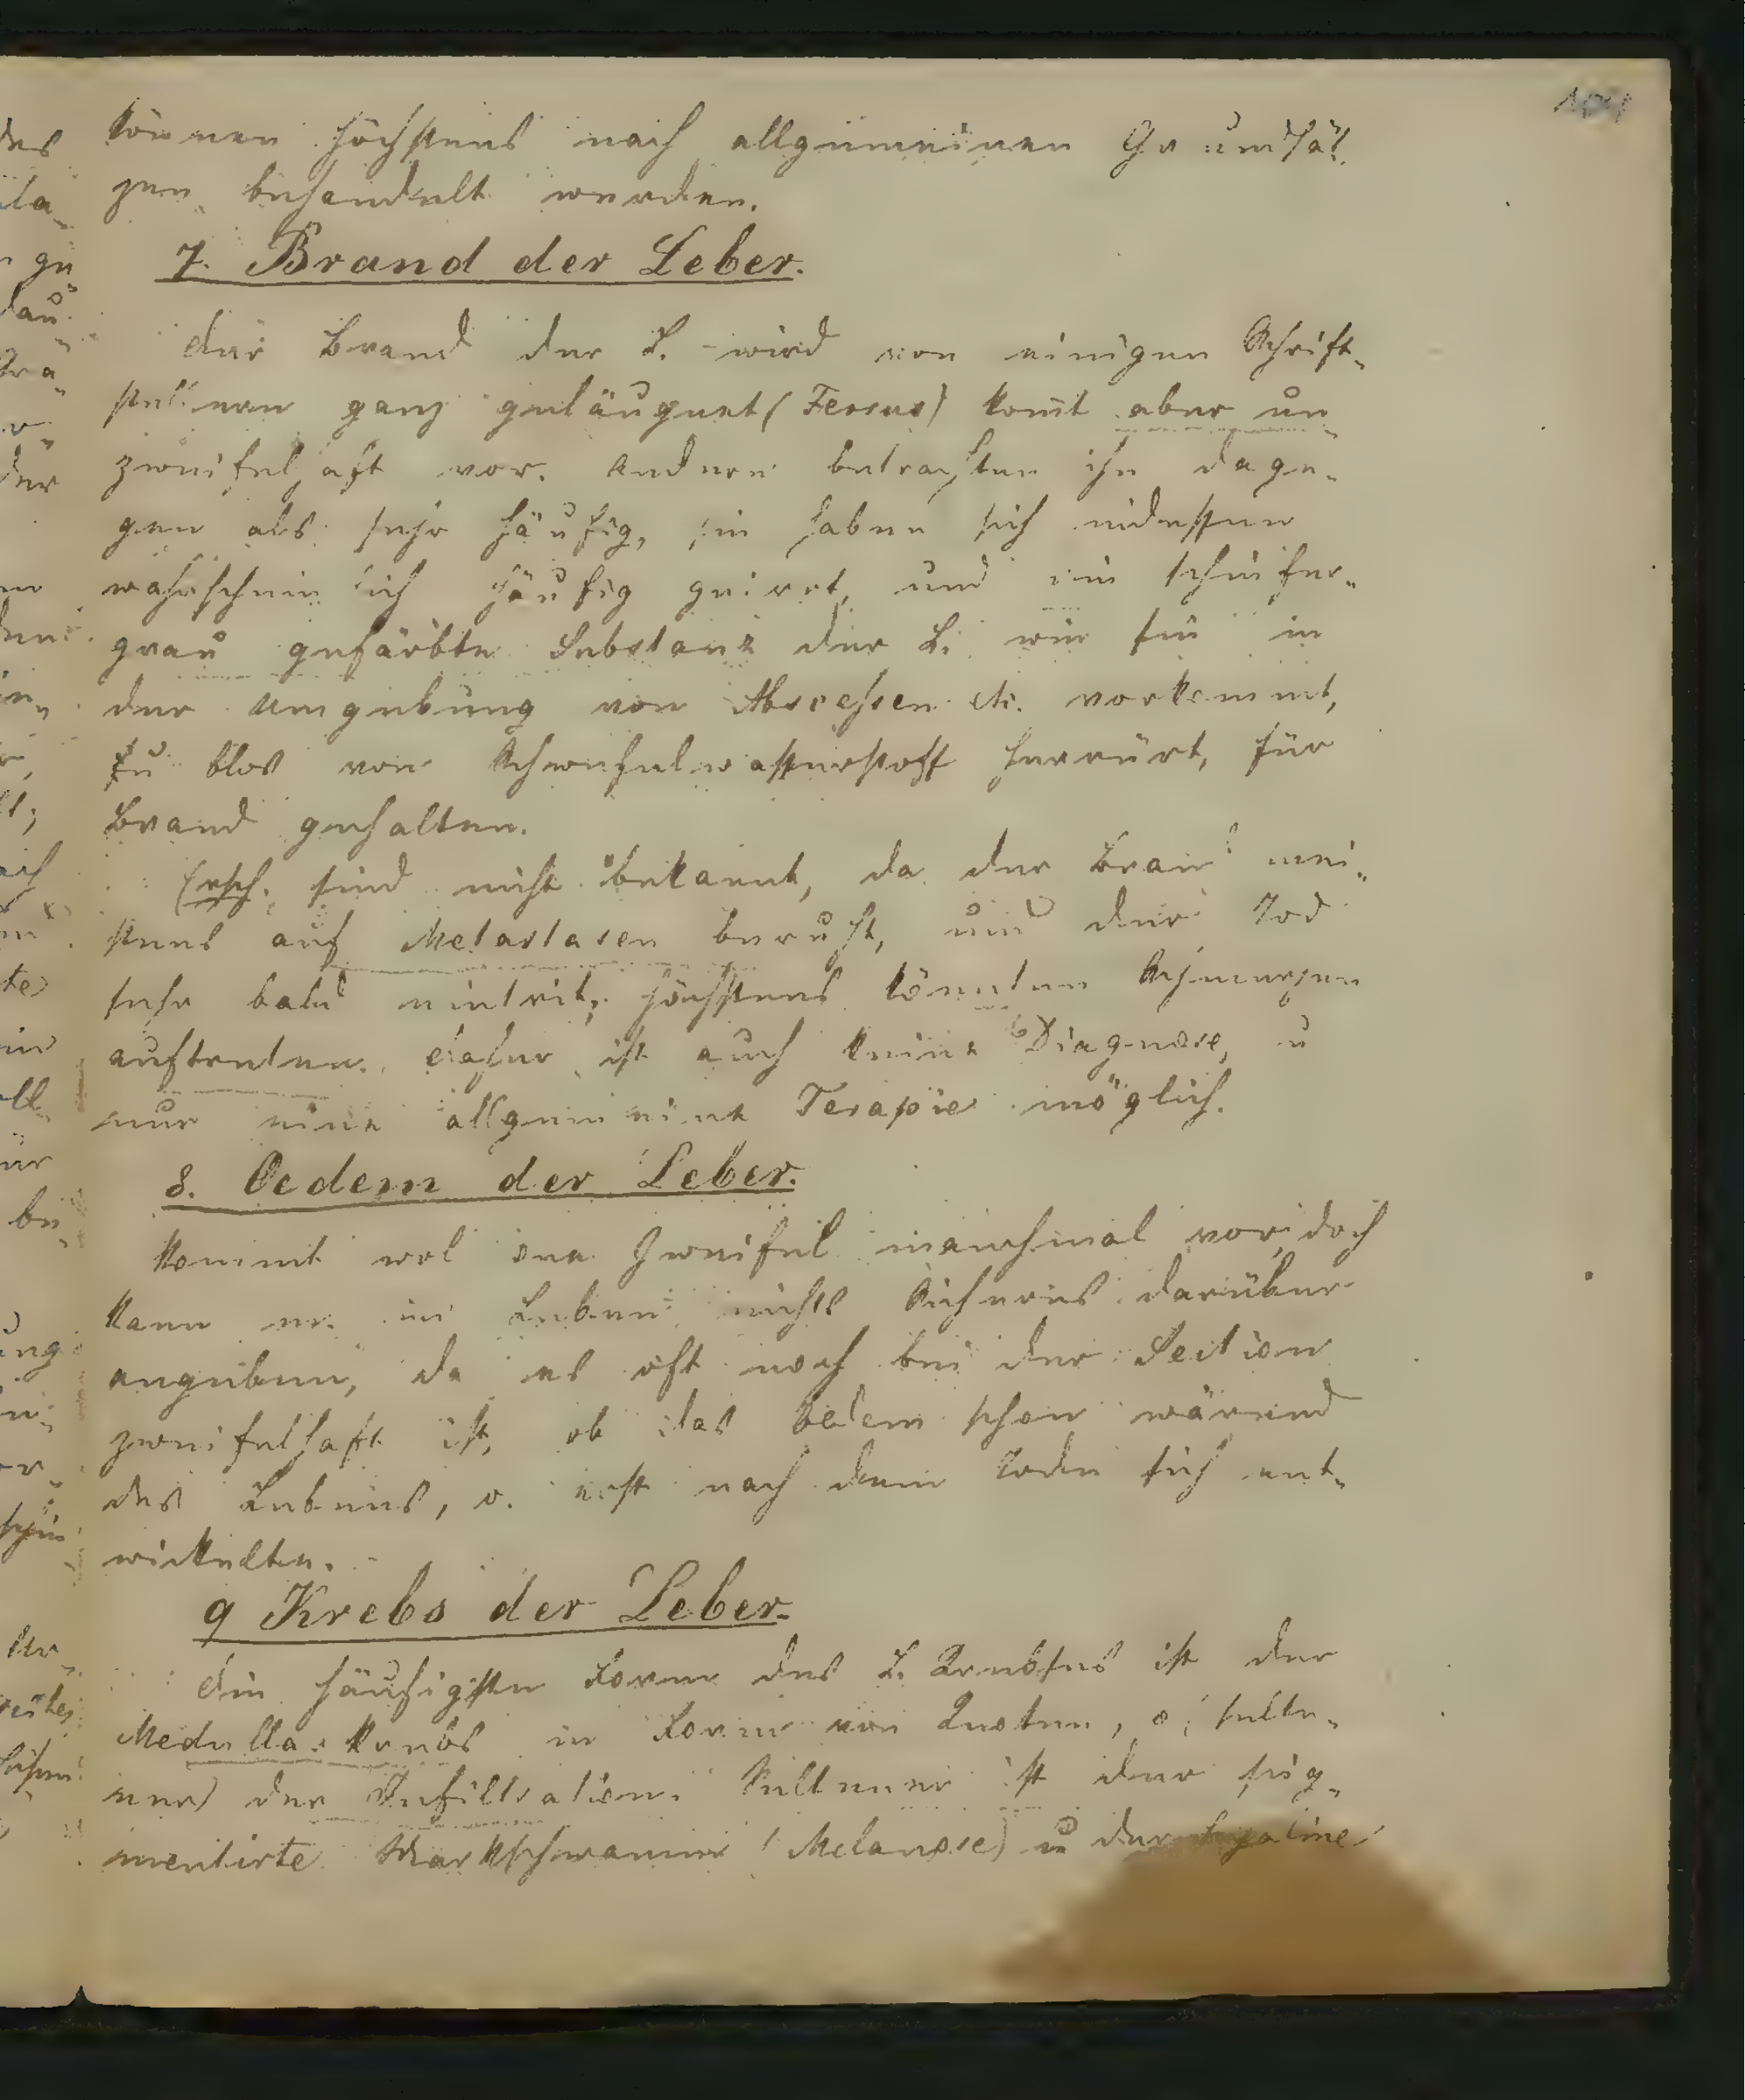 können höchstens nach allgemeinen Grundsät
zen behandelt werden.
7. Brand der Leber.
Der Brand der L. wird von einigen Schrift-
stellern ganz geläugnet (Ferrus) komt aber un
zweifelhaft vor. Andere betrachten ihn dage-
gen als sehr häufig, sie haben sich indessen
wahrscheinlich häufig geirrt, und eine schiefer-
grau gefärbte Substanz der L. wie sie in
der Umgebung von Abscessen etc. vorkommt,
blos von Schwefelwasserstoff herrürt, für
Brand gehalten.
Ersch. sind nicht bekannt, da der Brand mei-
stens auf Metastasen beruht, und der Tod
sehr bald eintrit, höchstens könnten Schmerzen
auftreten. Daher ist auch keine Diagnose, u
nur eine allgemeine Terapie möglich.
8. Oedem der Leber.
kommt wol one Zweifel manchmal vor, doch
kann m. im Leben nichts Sicheres darüber
angeben, da es oft noch bei der Section
zweifelhaft ist, ob das Oedem schon wärend
des Lebens, o. erst nach dem Tode sich ent-
wickelte.
9 Krebs der Leber.
Die häufigste Form des L. Krebses ist der
Medullarkrebs in Form von Knoten, o. (selte-
ner) der Infiltration. Seltener ist der pig-
mentirte Markschwamm (Melanose) u der hyaline